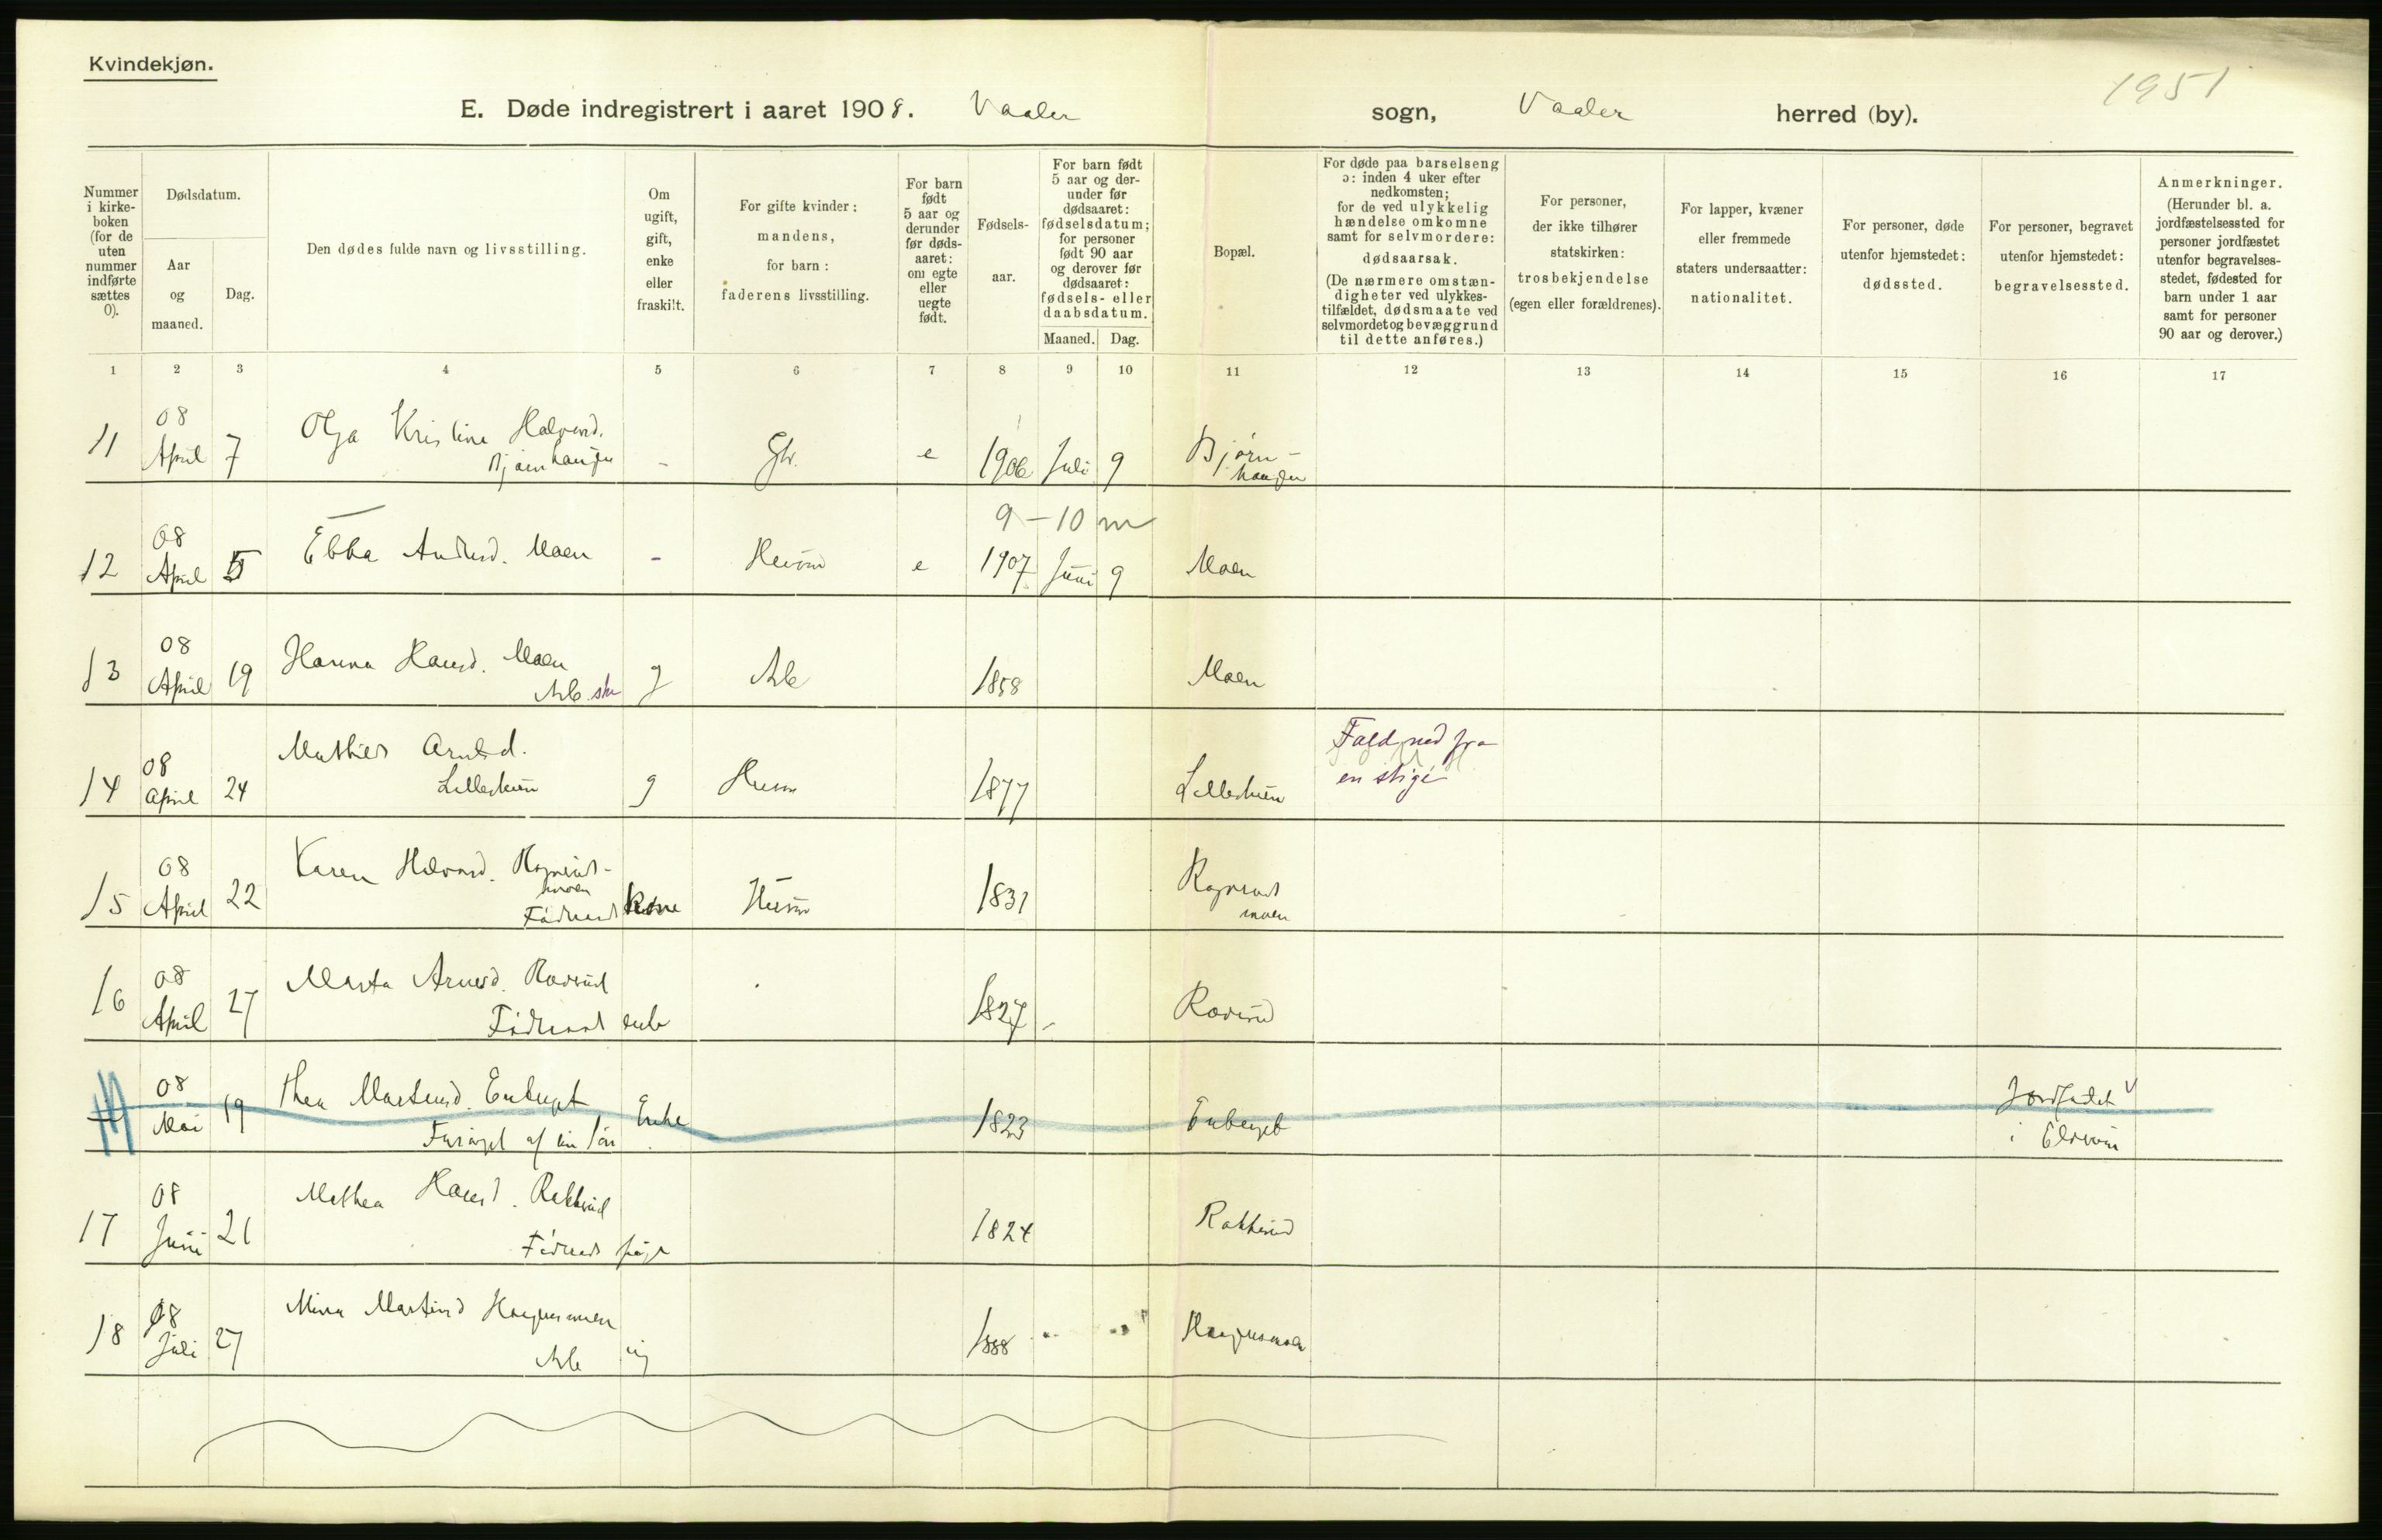 Kvindekjøn.
1951
E. Døde indregistrert i aaret 1908. Vaaler sogn, Vaaler herred (by).
Nummer i kirke-boken (for de uten nummer indførte sættes 0).
Dødsdatum.
Aar og maaned.
Dag.
Den dødes fulde navn og livsstilling.
Om ugift, gift, enke eller fraskilt.
For gifte kvinder: mandens, for barn: faderens livsstilling.
For barn født 5 aar og derunder før døds-aaret: om egte eller uegte født.
Fødsels-aar.
For barn født 5 aar og der-under før dødsaaret: fødselsdatum; for personer født 90 aar og derover før dødsaaret: fødsels- eller daabsdatum.
Maaned. Dag.
Bopæl.
For døde paa barselseng ɔ: inden 4 uker efter nedkomsten; for de ved ulykkelig hændelse omkomne samt for selvmordere: dødsaarsak. (De nærmere omstæn-digheter ved ulykkes-tilfældet, dødsmaate ved selvmordet og bevæggrund til dette anføres.)
For personer, der ikke tilhører statskirken: trosbekjendelse (egen eller forældrenes).
For lapper, kvæner eller fremmede staters undersaatter: nationalitet.
For personer, døde utenfor hjemstedet: dødssted.
For personer, begravet utenfor hjemstedet: begravelsessted.
Anmerkninger. (Herunder bl. a. jordfæstelsessted for personer jordfæstet utenfor begravelses-stedet, fødested for barn under 1 aar samt for personer 90 aar og derover.)
1 2 3 4 5 6 7 8 9 10 11 12 13 14 15 16 17
11 08 April 7 Olga Kristine Halvorsd. Bjørnhaugen - Gbr. e 1906 Juli 9 Bjørn-haugen
9-10 m
12 08 April 5 Ebba Andersd. Moen - Husm e 1907 Juni 9 Moen
13 08 April 19 Hanna Hansd. Moen Arb. g Arb 1858 Moen
14 08 April 24 Arnesd. g Husm 1877 Fald ned fra en stige
15 08 April 22 Karen Halvorsd. Føderaad Kone Husm 1831
16 08 April 27 Marta Arnesd. Føderaad enke 1827
08 Mai 19 Thea Martinsd. Enberget af sin søn Enke 1823 Enberget Jordfæstet i Elverum
17 08 Juni 21 Mathea Hansd. Rakkerud Føderaads pige 1824 Rakkerud
18 08 Juli 27 Mina Martinsd Haugensmoen Arb ug 1888 Haugensmoen